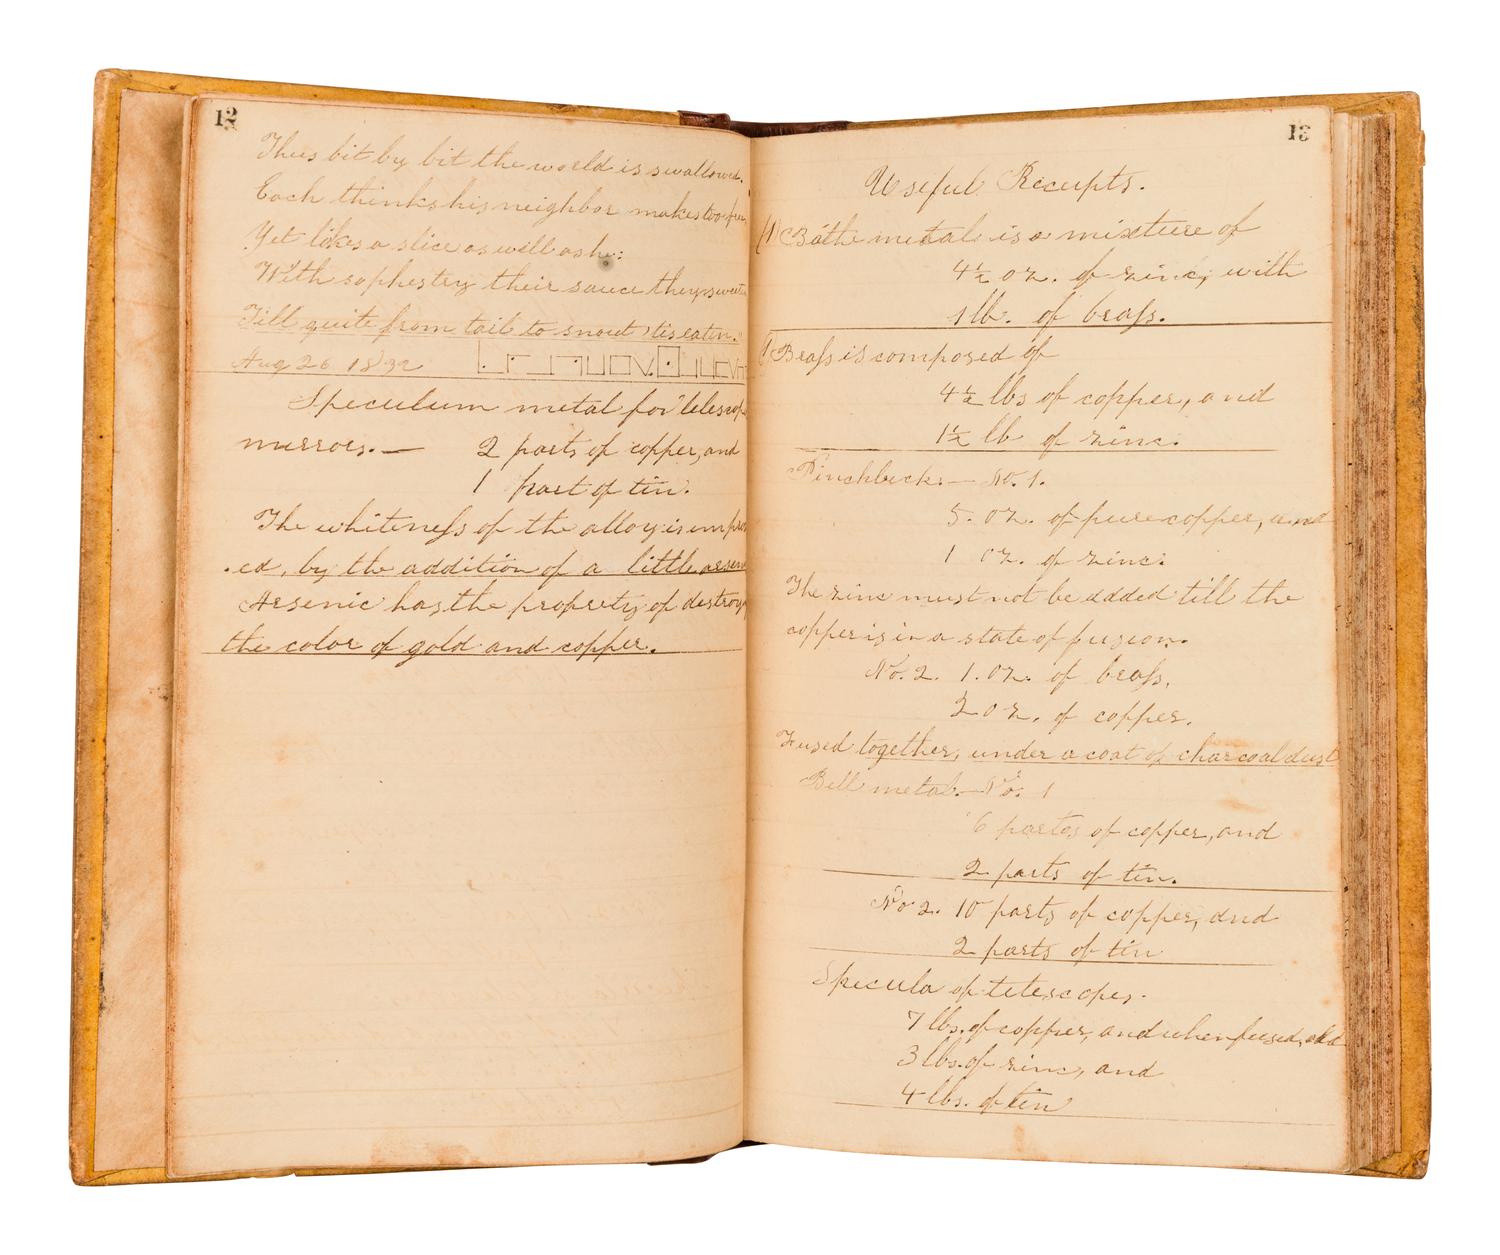 12
Thus bit by bit the world is swallowed.
Each thinks his neighbor makes too free
Yet likes a slice as well as he:
With sophestry their sauce they sweeten
Till quite from tail to snout 'tis eaten."
Aug 26 18
Speculum metal for telescope
mirrors. — 2 parts of copper, and
1 part of tin.
The whiteneſs of the alloy is improv
ed, by the addition of a little arsen
Arsenic has the proprety of destroy
the color of gold and copper.
13
Useful Receipts.
(1) Bathe metal is a mixture of
4½ oz. of zinc, with
1 lb. of braſs.
Braſs is composed of
4½ lbs of copper, and
1½ lb of zinc.
Pinchbeck — No. 1.
5. oz. of pure copper, and
1 oz. of zinc.
The zinc must not be added till the
copper is in a state of fusion.
No. 2. 1. oz. of braſs,
2 oz. of copper.
Fused together, under a coat of charcoal dust
Bell metal — No. 1
6 partes of copper, and
2 parts of tin.
No 2. 10 parts of copper, and
2 parts of tin
Specula of telescopes.
7 lbs. of copper, and when fused, add
3 lbs. of zinc, and
4 lbs. of tin